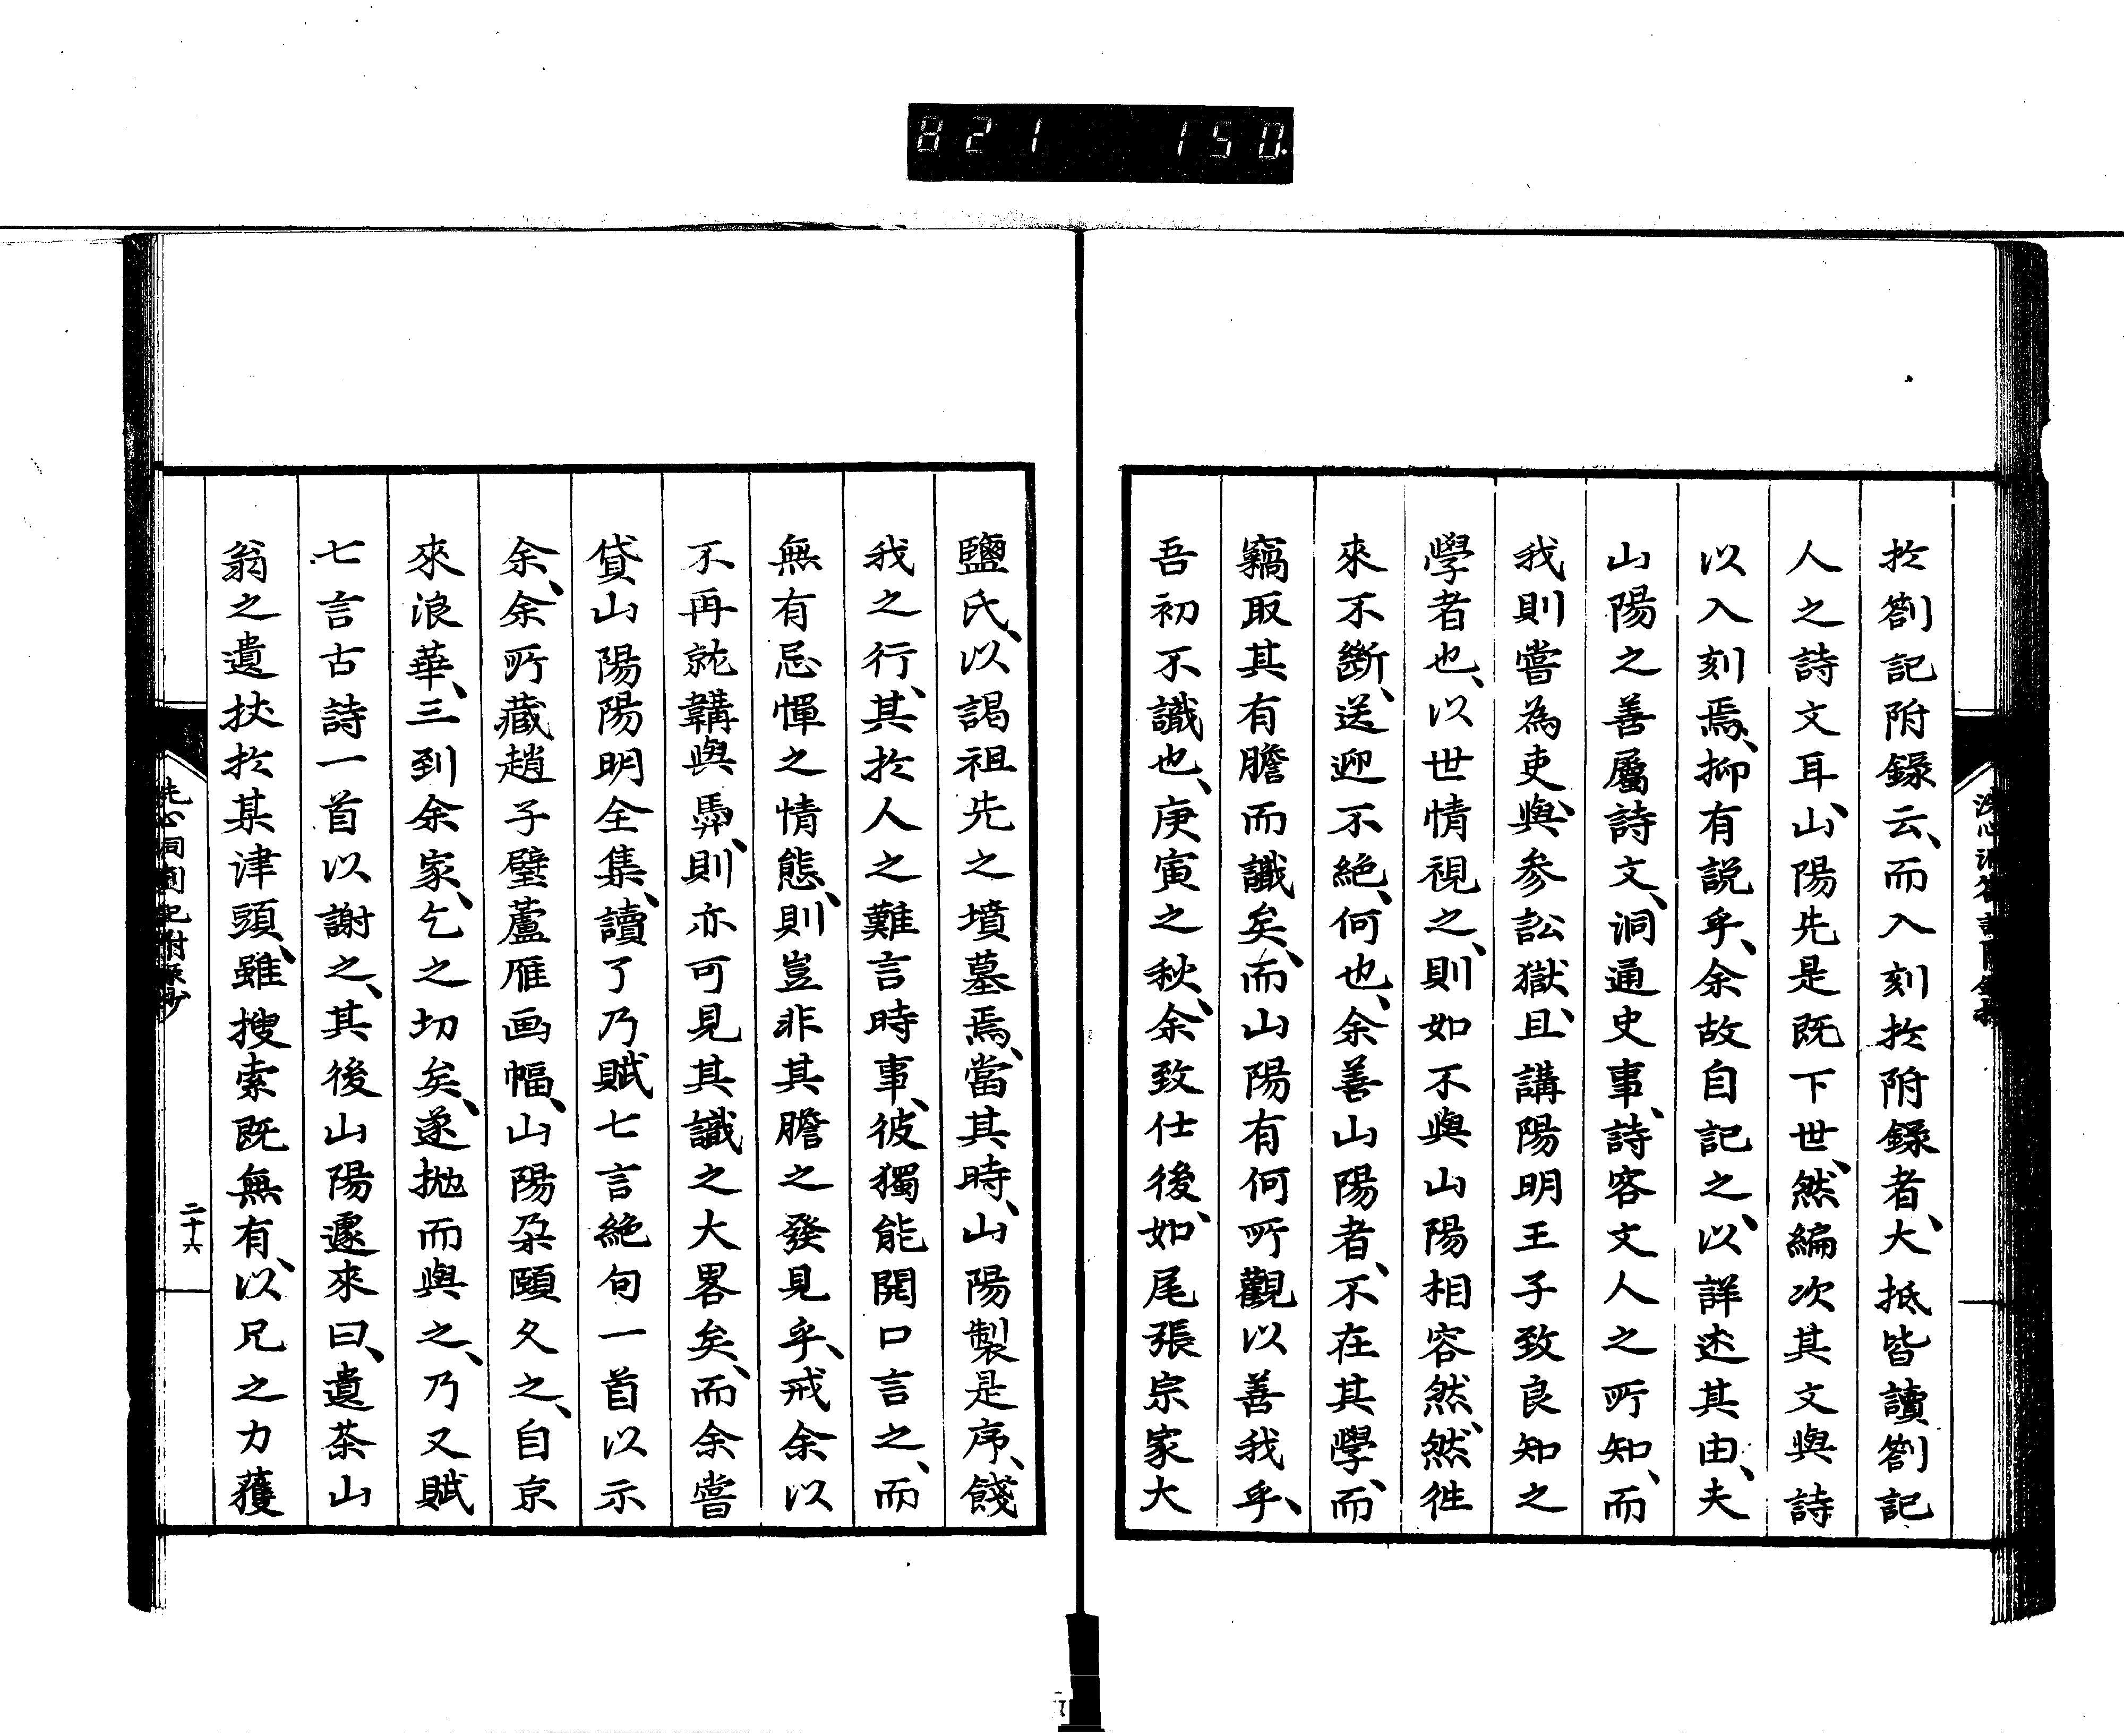 821 150
於劄記附錄云、而入刻於附錄者、大抵皆讀劄記
人之詩文耳、山陽先是既下世、然編次其文與詩
以入刻焉、抑有説乎、余故自記之、以詳述其由、夫
山陽之善屬詩文、洞通史事、詩客文人之所知、而
我則嘗為吏、與參訟獄、且講陽明王子致良知之
學者也、以世情視之、則如不與山陽相容然、然徃
來不斷、送迎不絶、何也、余善山陽者、不在其學、而
竊取其有膽而識矣、而山陽有何所觀以善我乎、
吾初不識也、庚寅之秋、余致仕後、如尾張宗家大
鹽氏、以謁祖先之墳墓焉、當其時、山陽製是序、餞
我之行、其於人之難言時事、彼獨能開口言之、而
無有忌憚之情態、則豈非其膽之發見乎、戒余以
不再就韝與馽、則亦可見其識之大畧矣、而余嘗
貸山陽陽明全集、讀了乃賦七言絶句一首以示
余、余所藏趙子璧蘆雁画幅、山陽朶頤久之、自京
來浪華、三到余家、乞之切矣、遂拋而與之、乃又賦
七言古詩一首以謝之、其後山陽遽來曰、遺茶山
翁之遺杖於某津頭、雖搜索既無有、以兄之力獲
洗心洞劄記附錄抄
二十六